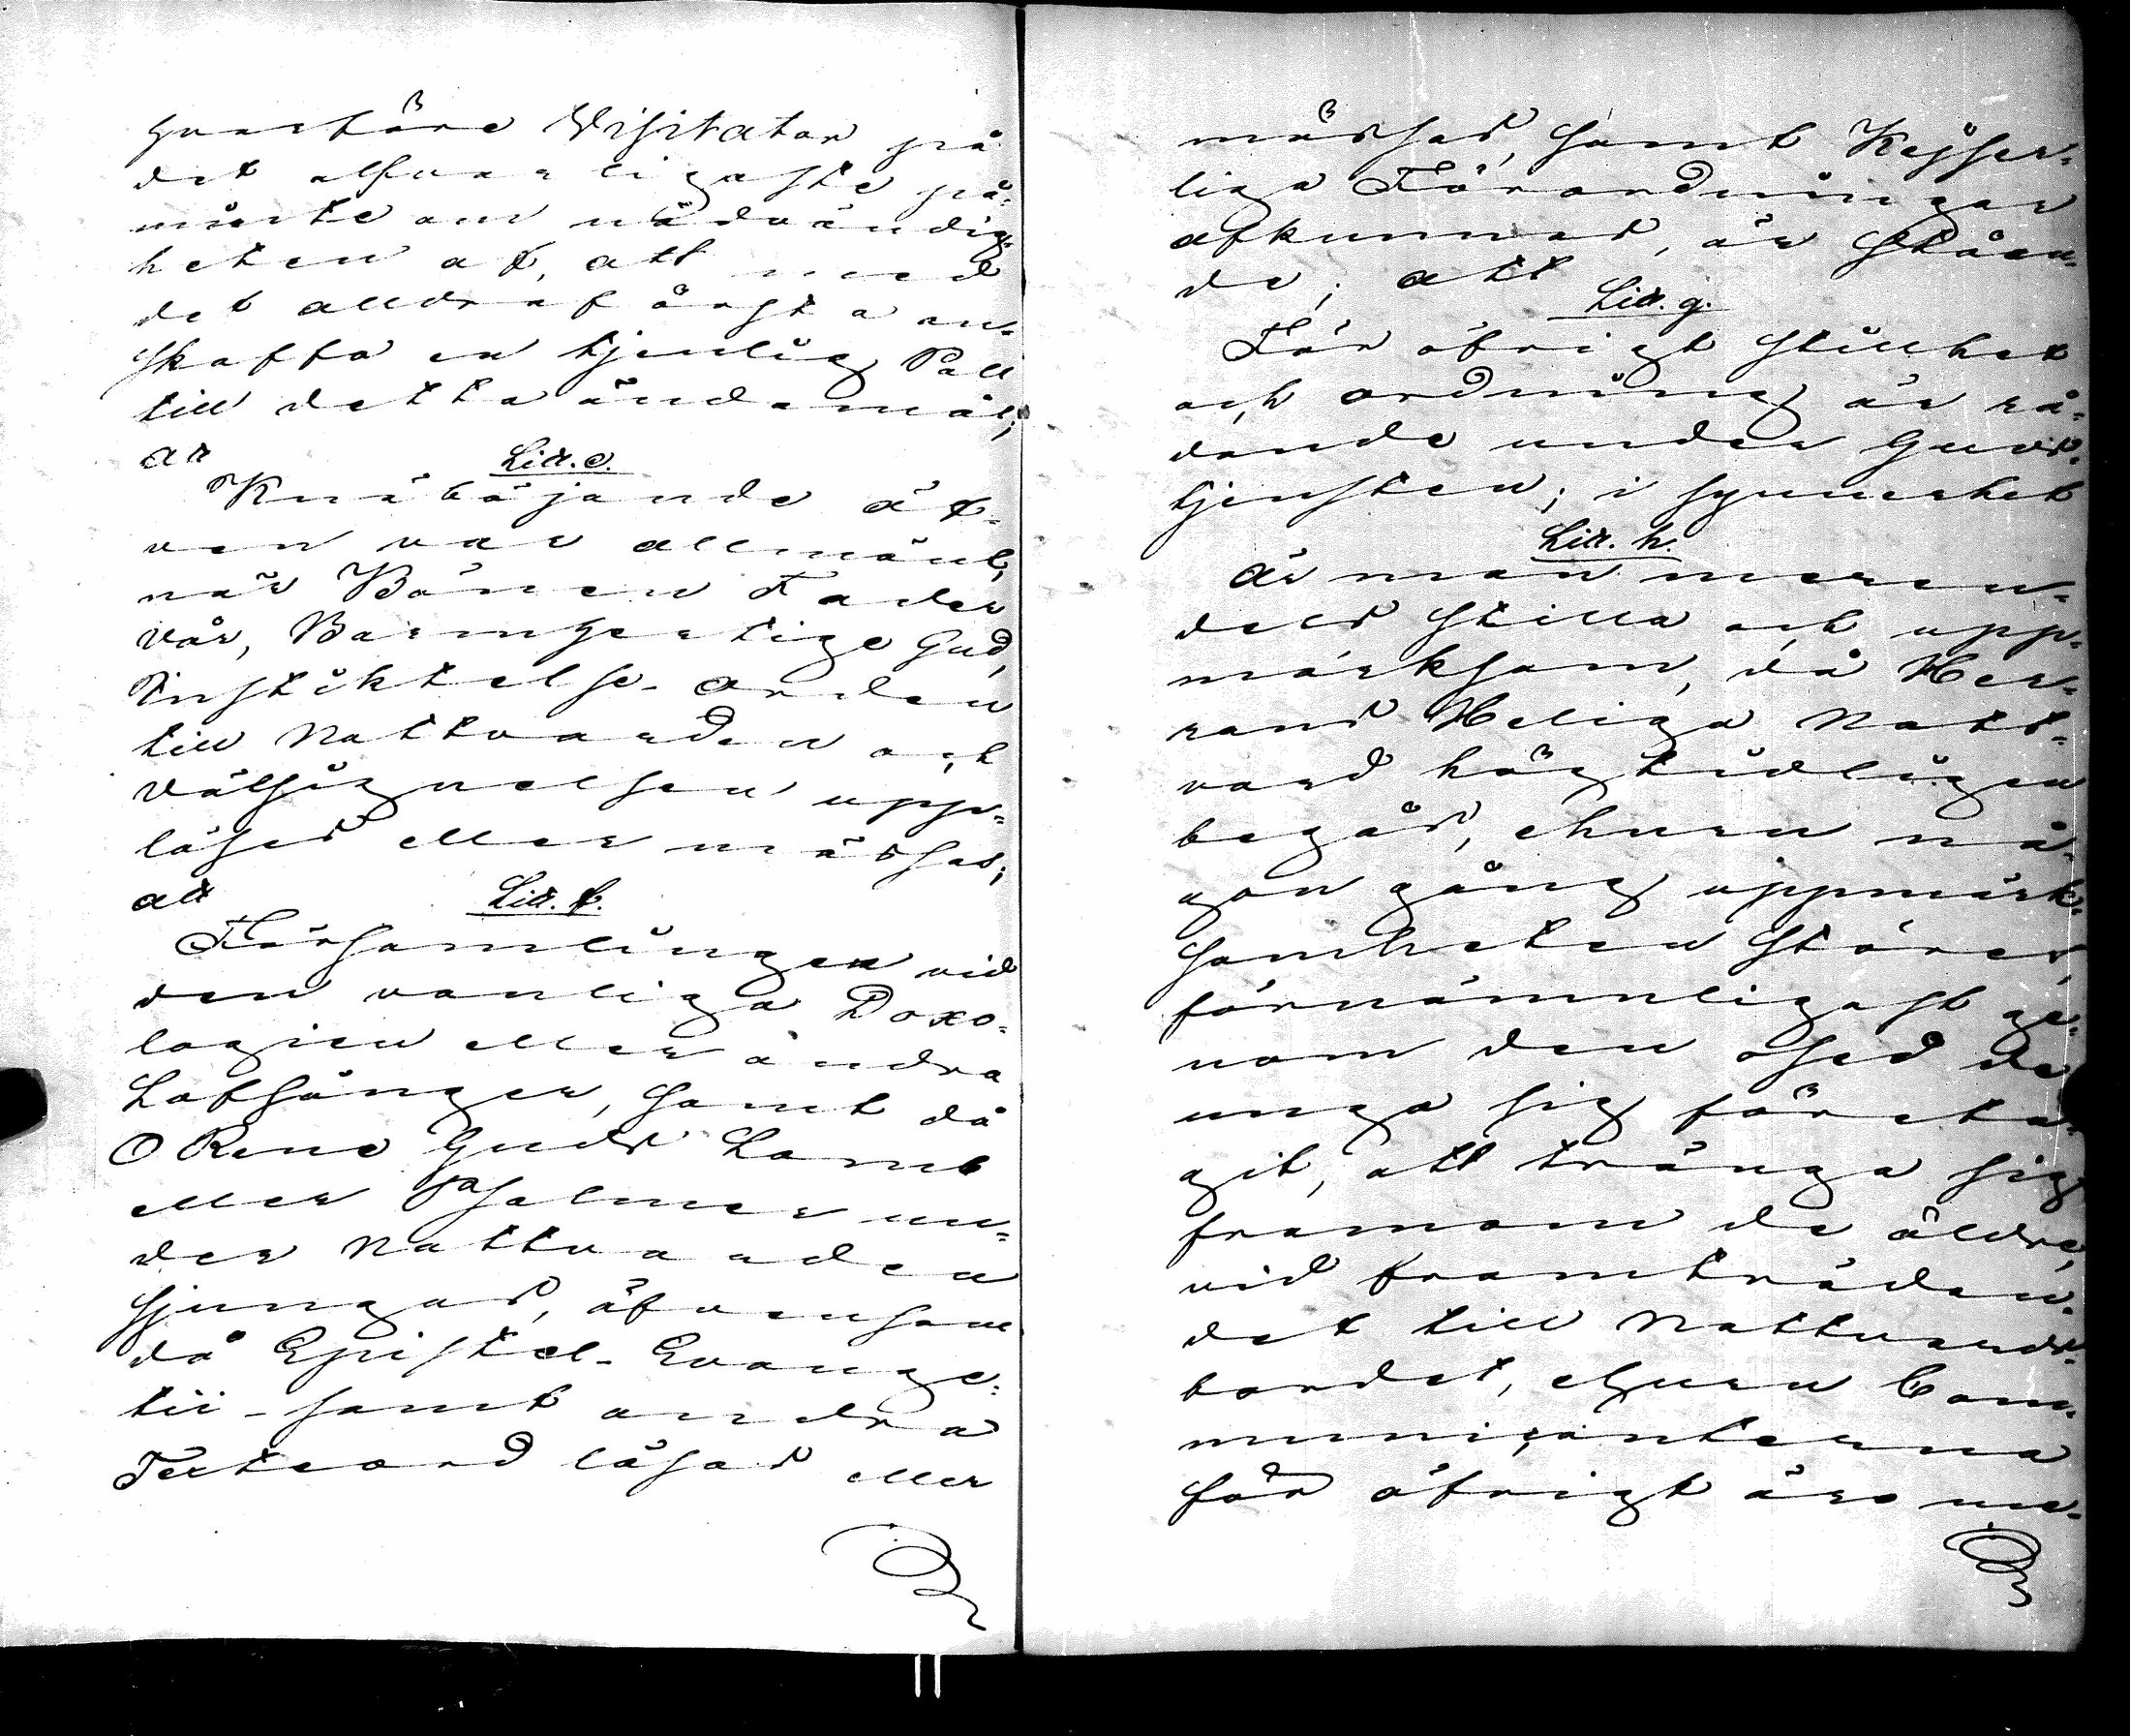 hvarföre Visitator på
det alfvarligaste på-
minte om nödvändig-
heten af, att med
det alldraförsta an-
skaffa en tjenlig Pall
till detta ändamål;
at
Litt. e.
Knäböjande äf-
ven var allmänt,
när Bönen Fader
vår, Barmhertige Gud,
Instiktelse-orden
till Nattvarden och
Välsignelsen upp-
läses eller mässas;
att
Litt. f.
Församlingen vid
den vanliga Doxo-
logien eller andra
Lofsånger, samt då
O Rene Guds Lamb
eller Psalmer un-
der Nattvarden
sjungas, äfvensom
då Epistel- Evange-
lii- samt andra
Texteord läsas eller
mässas, samt Kejser-
liga Förordningar
afkunnas, är ståen-
de; att
Litt. g.
För öfrigt stillhet
och ordning är rå-
dande under Guds-
tjensten; i synnerhet
Litt. h.
är man meren-
dels stilla och upp-
märksam, då Her-
rans Heliga Natt-
vard högtidligen
begås, ehuru nå-
gon gång uppmärk-
samheten störes,
förnämnligast ge-
nom den osed de
unga sig företa-
git, att tränga sig
framom de äldre,
vid framträden-
det till Nattvards-
bordet, ehuru Com-
municanterna
för öfrigt äro me-